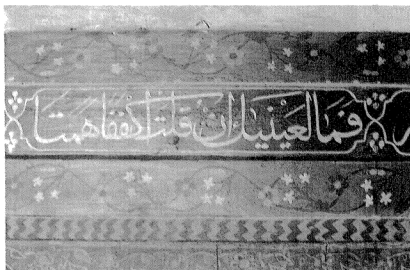 فما لعينيك ان قلت اكففا همتا